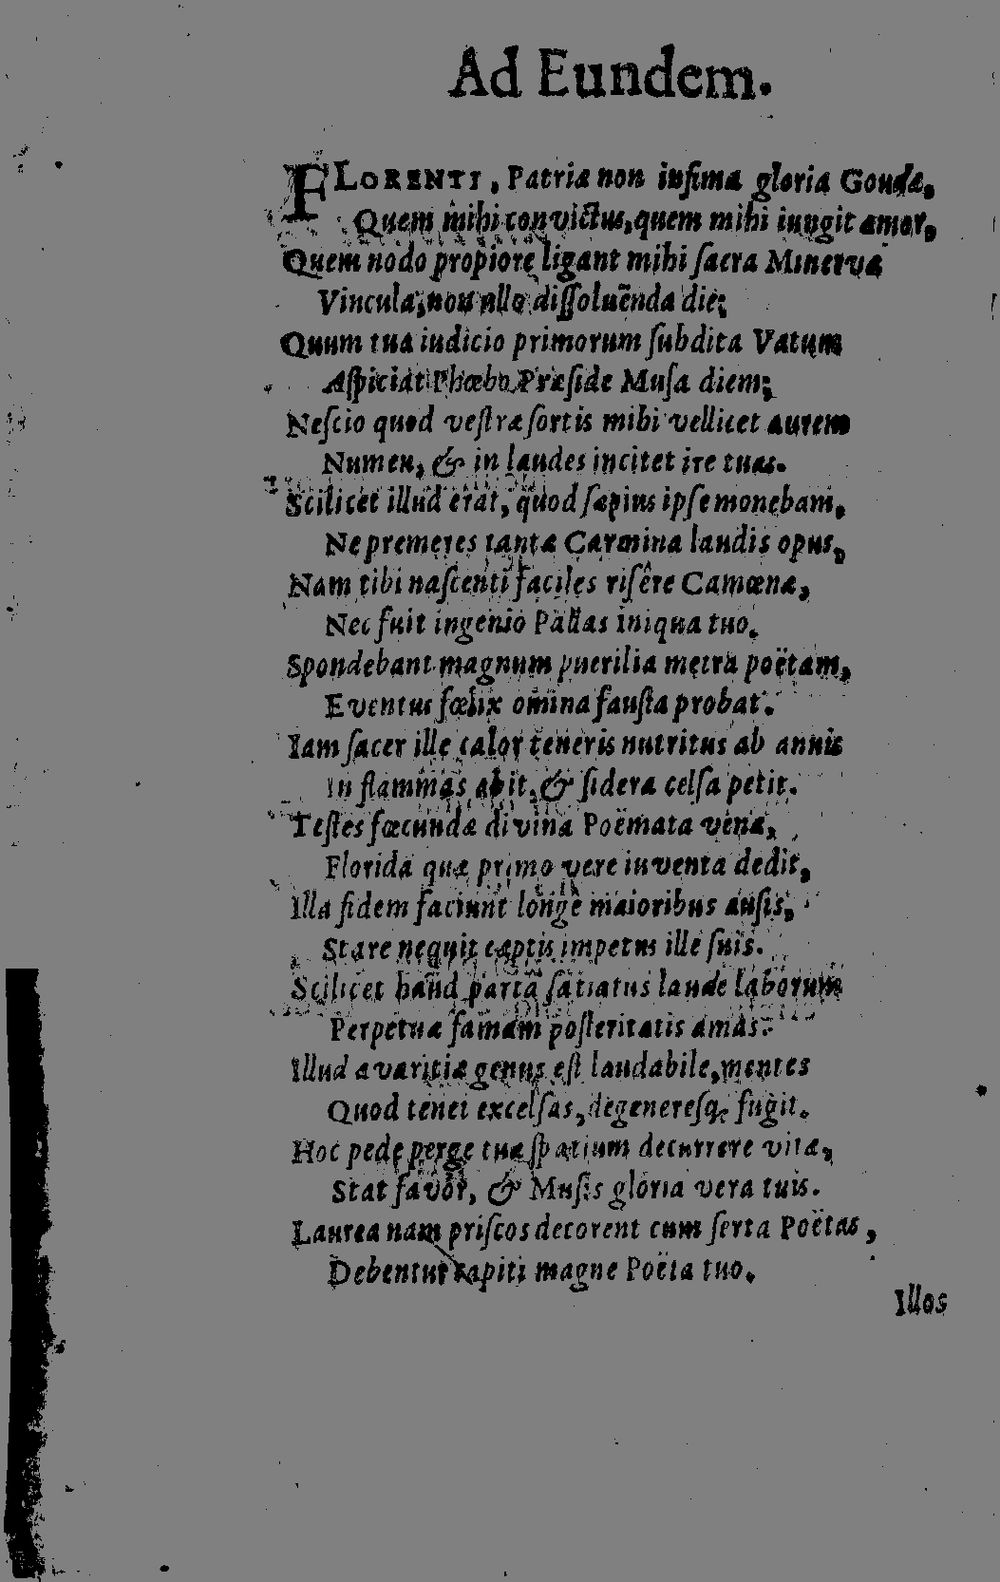 Ad Eundem.
FLORENTI, Patriæ non infima gloria Goudæ,
Quem mihi convictus, quem mihi iungit amor,
Quem nodo propiore ligant mihi sacra Minervæ
Vincula, non ullo dissoluẽnda die;
Quum tua iudicio primorum subdita Vatum
Aspiciat Phœbo Præside Musa diem;
Nescio quod vestræ sortis mihi vellicet aurem
Numen, & in laudes incitet ire tuas.
Scilicet illud erat, quod sæpius ipse monebam,
Ne premeres tantæ Carmina laudis opus,
Nam tibi nascenti faciles risêre Camœnæ,
Nec fuit ingenio Pallas iniqua tuo.
Spondebant magnum puerilia metra poëtam,
Eventus fœlix omina fausta probat.
Iam sacer ille calor teneris nutritus ab annis
In flammas abit, & sidera celsa petit.
Testes fœcundæ divina Poëmata venæ,
Florida quæ primo vere iuventa dedit,
Illa fidem faciunt longè maioribus ausis,
Stare nequit cæptis impetus ille suis.
Scilicet haud partâ satiatus laude laborum
Perpetuæ famam posteritatis amas.
Illud avaritiæ genus est laudabile, mentes
Quod tenet excelsas, degeneresq; fugit.
Hoc pede perge tuæ spatium decurrere vitæ,
Stat favor, & Musis gloria vera tuis.
Laurea nam priscos decorent cum serta Poëtas,
Debentur capiti magne Poëta tuo.
Illos